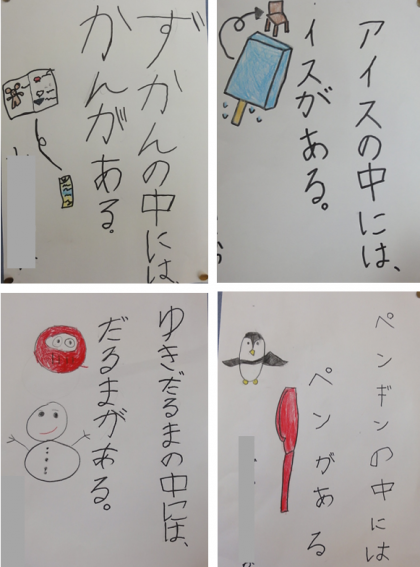 ずかんの中には、
かんがある。
アイスの中には、
イスがある。
ゆきだるまの中には、
だるまがある。
ペンギンの中には
ペンがある